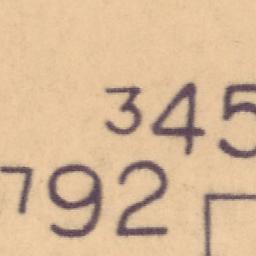 345
792